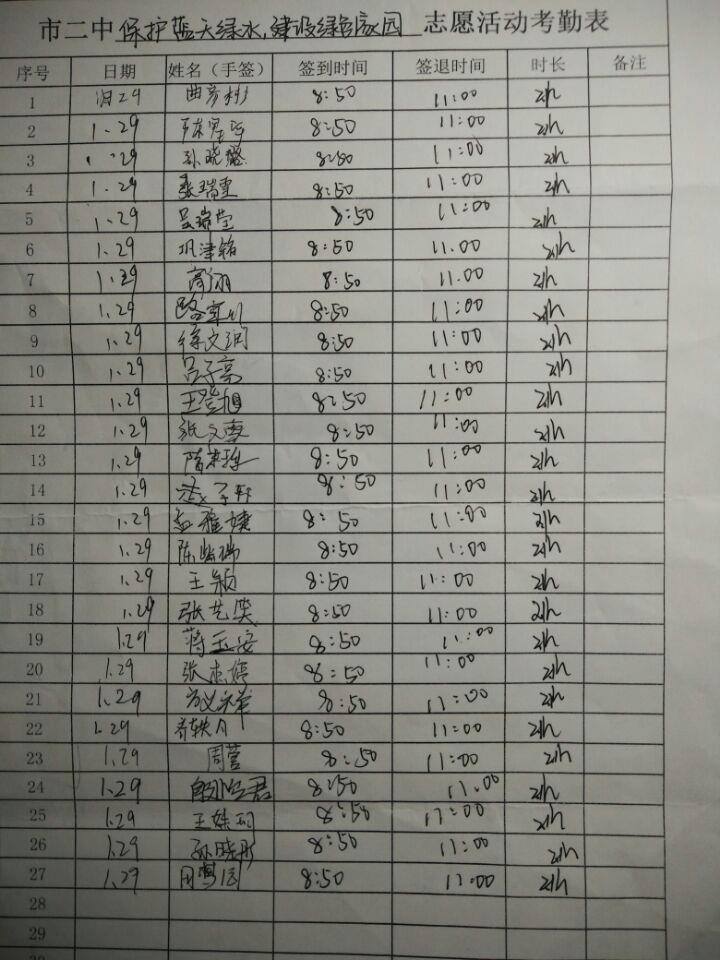 市二中保护蓝天绿水,建设绿色家园 志愿活动考勤表
序号 日期 姓名（手签） 签到时间 签退时间 时长 备注
1 8:50 11:00 2h
2 1.29 8:50 11:00 2h
3 1.29 孙晓璐 8:50 11:00 2h
4 1.29 8:50 11:00 2h
5 1.29 吴瑞莹 8:50 11:00 2h
6 1.29 巩津铭 8:50 11.00 2h
7 1.29 高翔 8:50 11.00 2h
8 1.29 8:50 11:00 2h
9 1.29 徐文润 8:50 11:00 2h
10 1.29 吕子亮 8:50 11:00 2h
11 1.29 王登旭 8:50 11:00 2h
12 1.29 张文惠 8:50 11:00 2h
13 1.29 8:50 11:00 2h
14 1.29 8:50 11:00 2h
15 1.29 孟雅婕 8:50 11:00 2h
16 1.29 8:50 11:00 2h
17 1.29 王颖 8:50 11:00 2h
18 1.29 张艺笑 8:50 11:00 2h
19 1.29 蒋玉安 8:50 11:00 2h
20 1.29 8:50 11:00 2h
21 1.29 8:50 11:00 2h
22 1.29 齐轶凡 8:50 11:00 2h
23 1.29 周莹 8:50 11:00 2h
24 1.29 8:50 11:00 2h
25 1.29 8:50 11:00 2h
26 1.29 孙晓彤 8:50 11:00 2h
27 1.29 8:50 11:00 2h
28
29